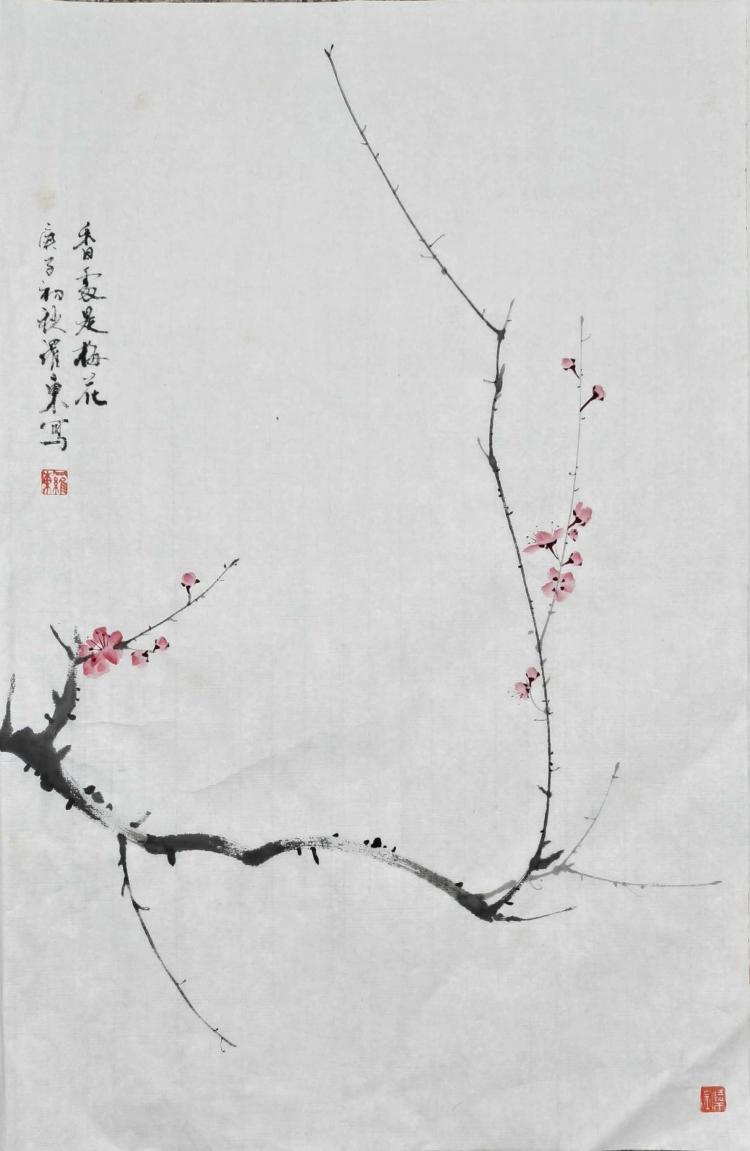 香處是梅花
庚子初秋羅東寫